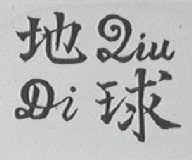 地 Qiu
Di 球